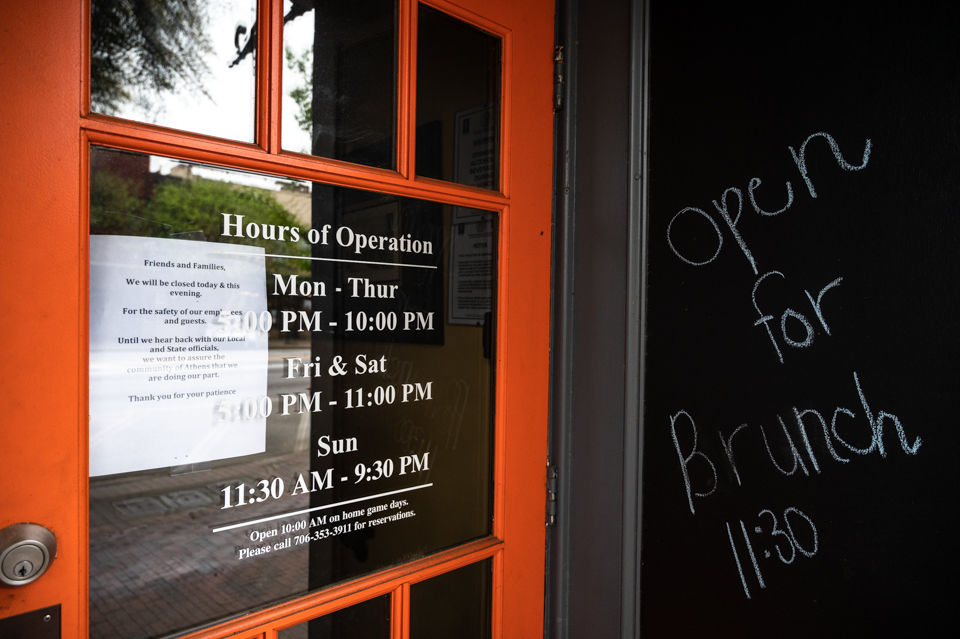 Friends and Families,
We will be closed today & this
evening.
For the safety of our employees
and guests.
Until we hear back with our Local
and State officials,
we want to assure the
community of Athens that we
are doing our part.
Thank you for your patience
Hours of Operation
Mon - Thur
5:00 PM - 10:00 PM
Fri & Sat
5:00 PM - 11:00 PM
Sun
11:30 AM - 9:30 PM
Open 10:00 AM on home game days.
Please call 706-353-3911 for reservations.
Open
for
Brunch
11:30